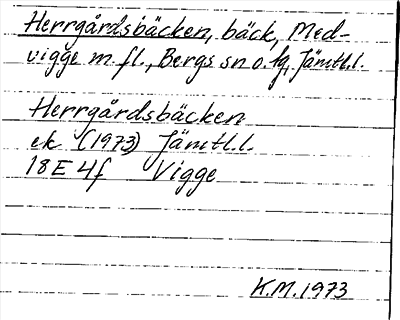 Herrgårdsbäcken, bäck, Med-
vigge m. fl., Bergs sn o. tg, Jämtl.l.
Herrgårdsbäcken
ek (1973) Jämtl.l.
18E 4f Vigge
K.M. 1973